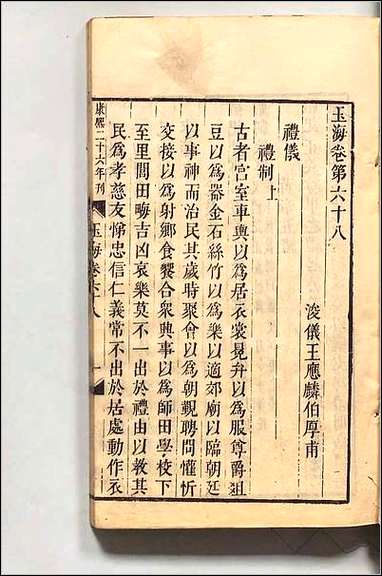 玉海卷第六十八
浚儀王應麟伯厚甫
禮儀
禮制上
古者宮室車輿以為居衣裳冕弁以為服尊爵俎
豆以為器金石絲竹以為樂以適郊廟以臨朝廷
以事神而治民其歲時聚會以為朝覲聘問懽忻
交接以為射鄉食饗合衆興事以為師田學校下
至里閭田畮吉凶哀樂莫不一出於禮由以敎其
民為孝慈友悌忠信仁義常不出於居處動作衣
康熙二十六年刊
玉海卷六十八
一